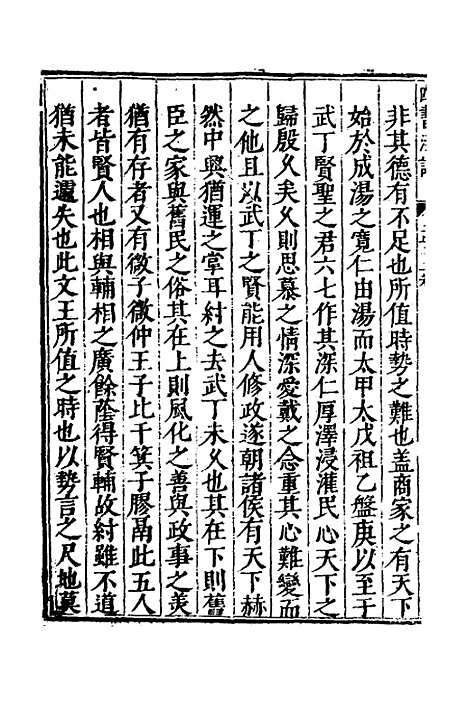 非其德有不足也所值時勢之難也盖商家之有天下
始於成湯之寬仁由湯而太甲太戊祖乙盤庚以至于
武丁賢聖之君六七作其深仁厚澤浸灌民心天下之
歸殷乆矣乆則思慕之情深愛戴之念重其心難變而
之他且以武丁之賢能用人修政遂朝諸侯有天下赫
然中興猶運之掌耳紂之去武丁未乆也其在下則舊
臣之家與舊民之俗其在上則風化之善與政事之美
猶有存者又有微子微仲王子比干箕子膠鬲此五人
者皆賢人也相與輔相之廣餘蔭得賢輔故紂雖不道
猶未能遽失也此文王所值之時也以勢言之尺地莫